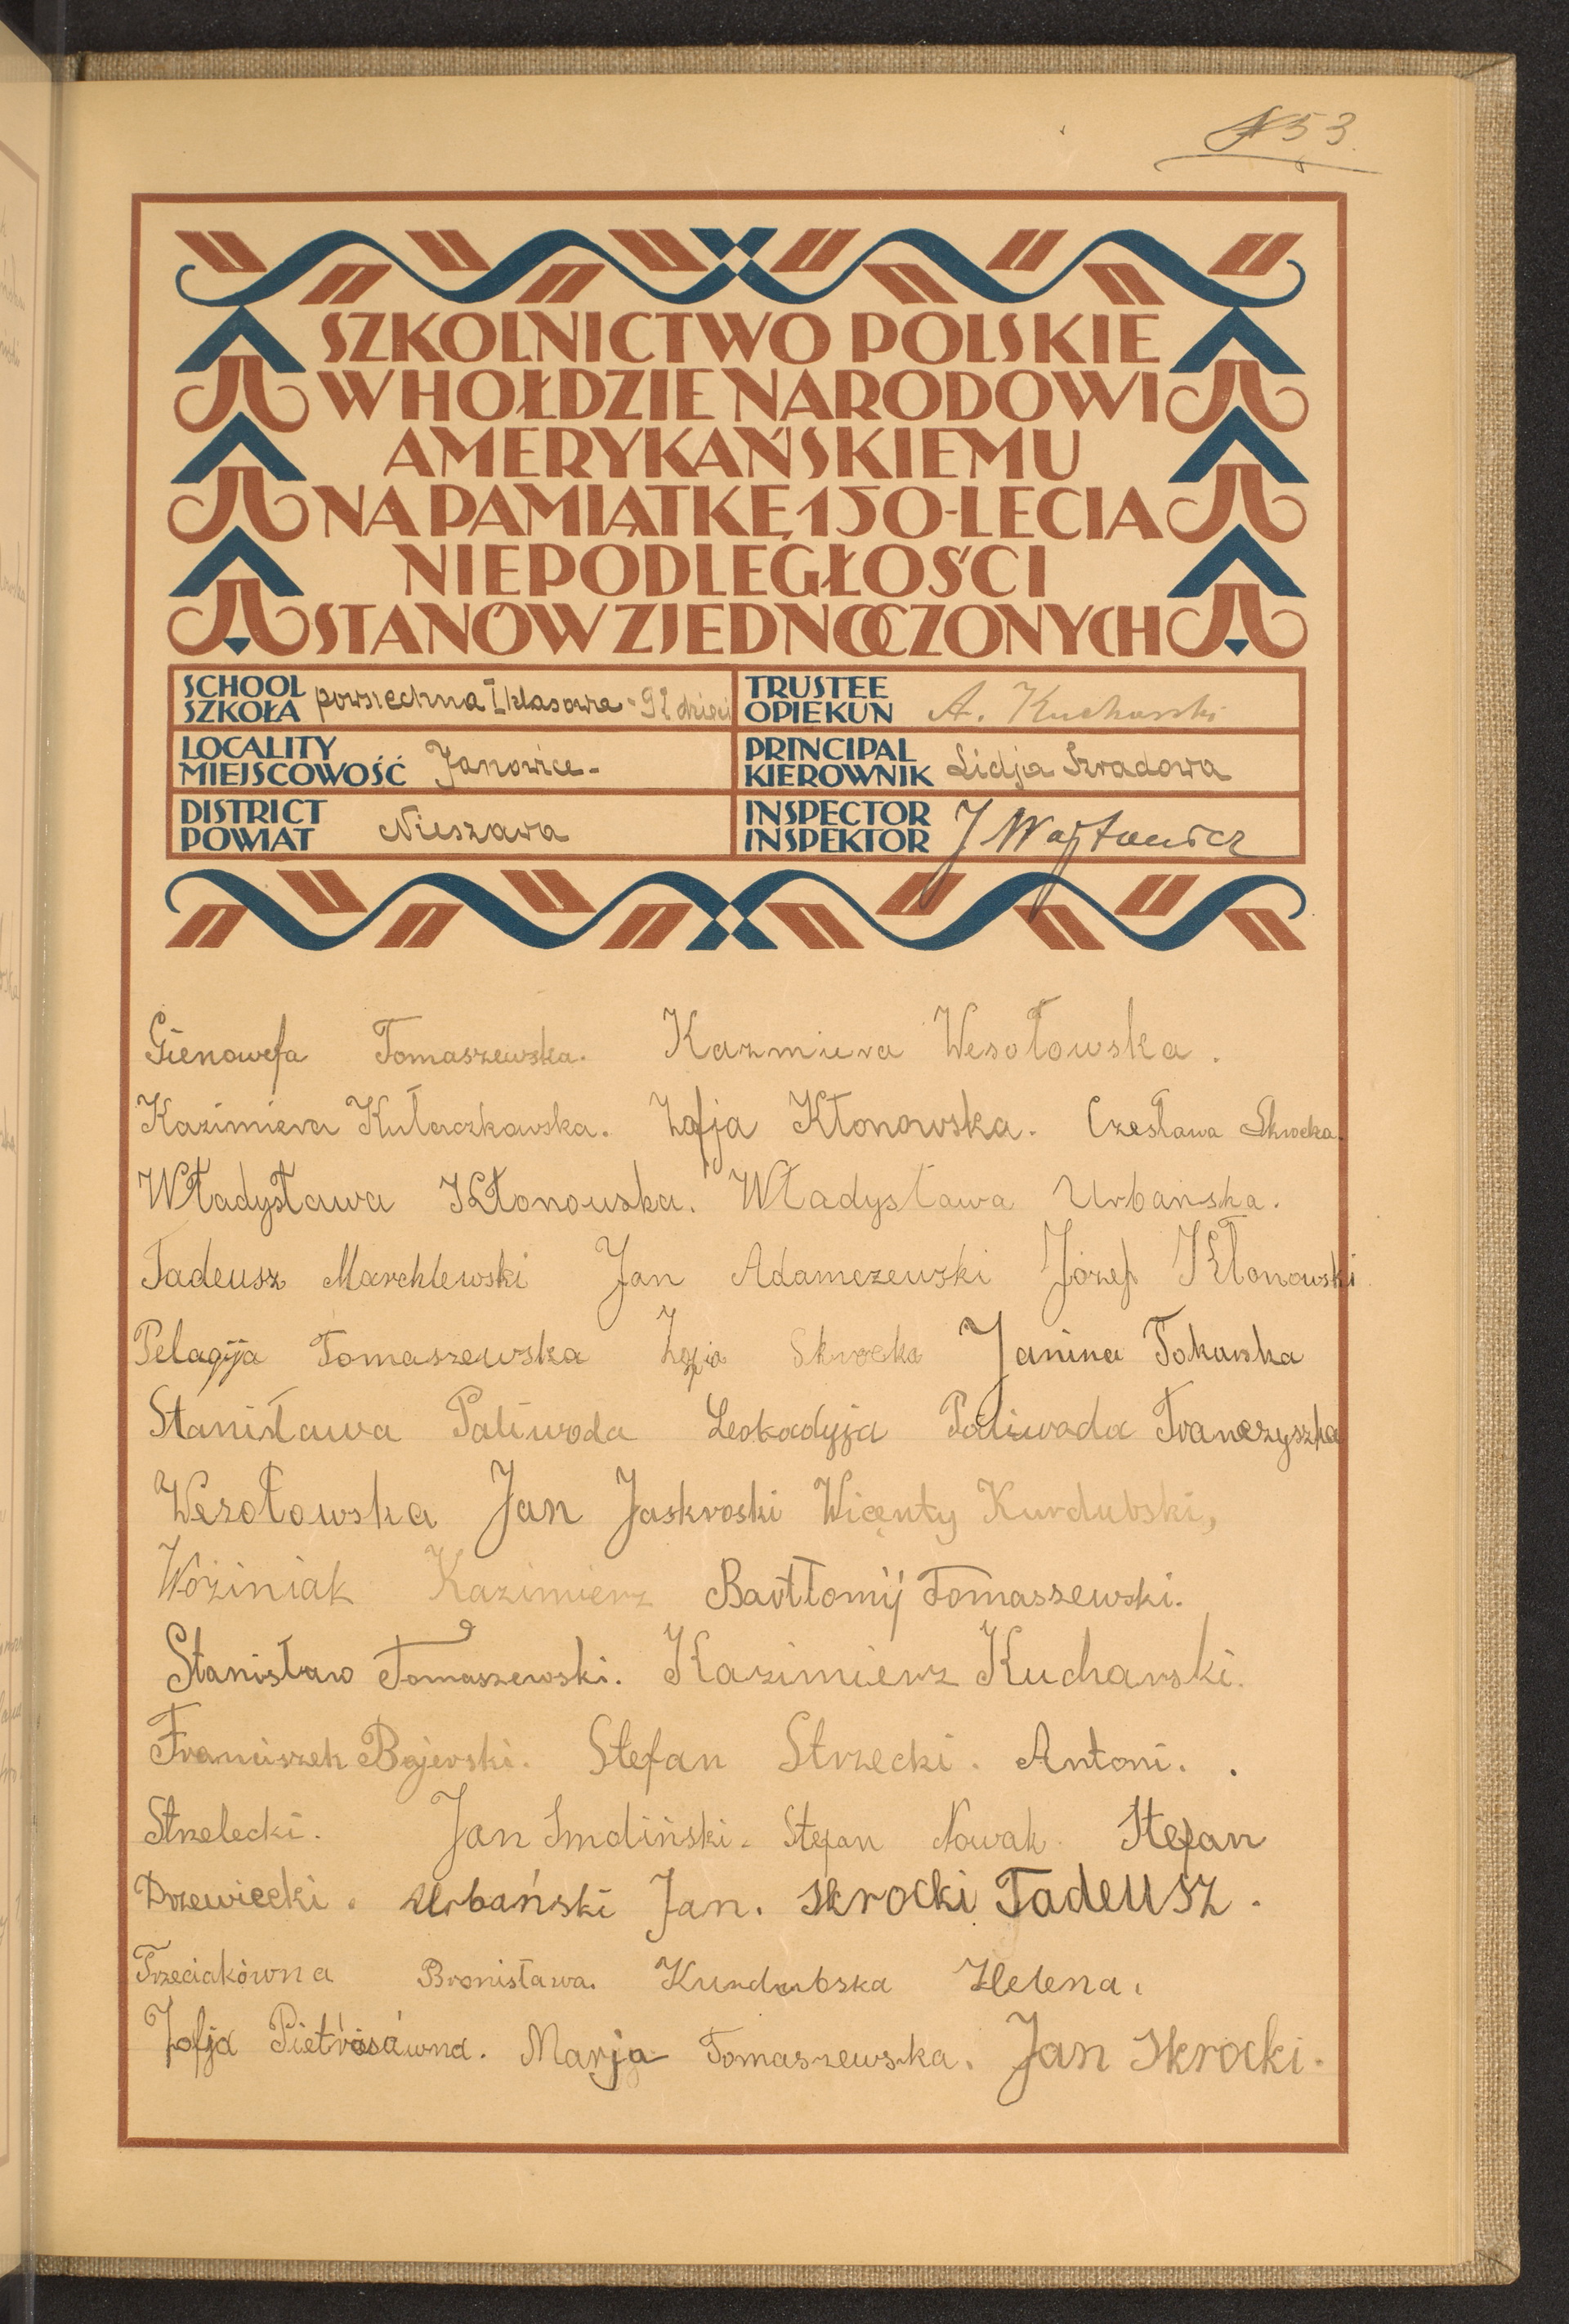 № 53.
SZKOLNICTWO POLSKIE
W HOŁDZIE NARODOWI
AMERYKAŃSKIEMU
NA PAMIĄTKĘ 150-LECIA
NIEPODLEGŁOŚCI
STANÓW ZJEDNOCZONYCH
SCHOOL SZKOŁA powsiechna I klasowa - 92 dzieci
TRUSTEE OPIEKUN A. Kucharski
LOCALITY MIEJSCOWOŚĆ Janowice -
PRINCIPAL KIEROWNIK Lidja Szradowa
DISTRICT POWIAT Nieszawa
INSPECTOR INSPEKTOR J Wojtowicz
Gienowefa Tomaszewska. Kazmiera Wesołowska.
Kazimiera Kułaczkowska. Zofja Kłonowska. Czesława Skrocka.
Władysława Kłonowska. Władysława Urbańska.
Tadeusz Marchlewski Jan Adamczewski Józef Kłonowski
Pelagija Tomaszewska Zofia Skrocka Janina Tokarska
Stanisława Paliwoda Leokadyja Paliwoda Franczyszka
Wesołowska Jan Jaskroski Wicęnty Kurdubski,
Woźiniak Kazimierz Bartłomij Tomaszewski.
Stanisław Tomaszewski. Kazimierz Kucharski.
Franciszek Bojerski. Stefan Strzecki. Antoni.
Strzelecki. Jan Smoliński. Stefan Nowak. Stefan
Drzewiecki. Urbański Jan. Skrocki Tadeusz.
Trzeciakówna Bronisława. Kurdubska Helena.
Zofja Pietrasówna. Marja Tomaszewska. Jan Skrocki.